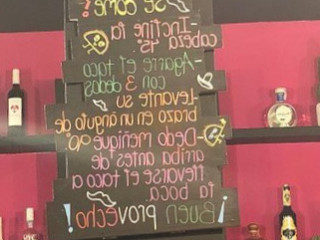 se come!
Incline la
cabeza 45°.
-Agarre el taco
con 3 dedos
-Levante su
brazo en un angulo de
90° Dedo meñique
arriba antes de
llevarse el taco a
la boca
¡Buen provecho!